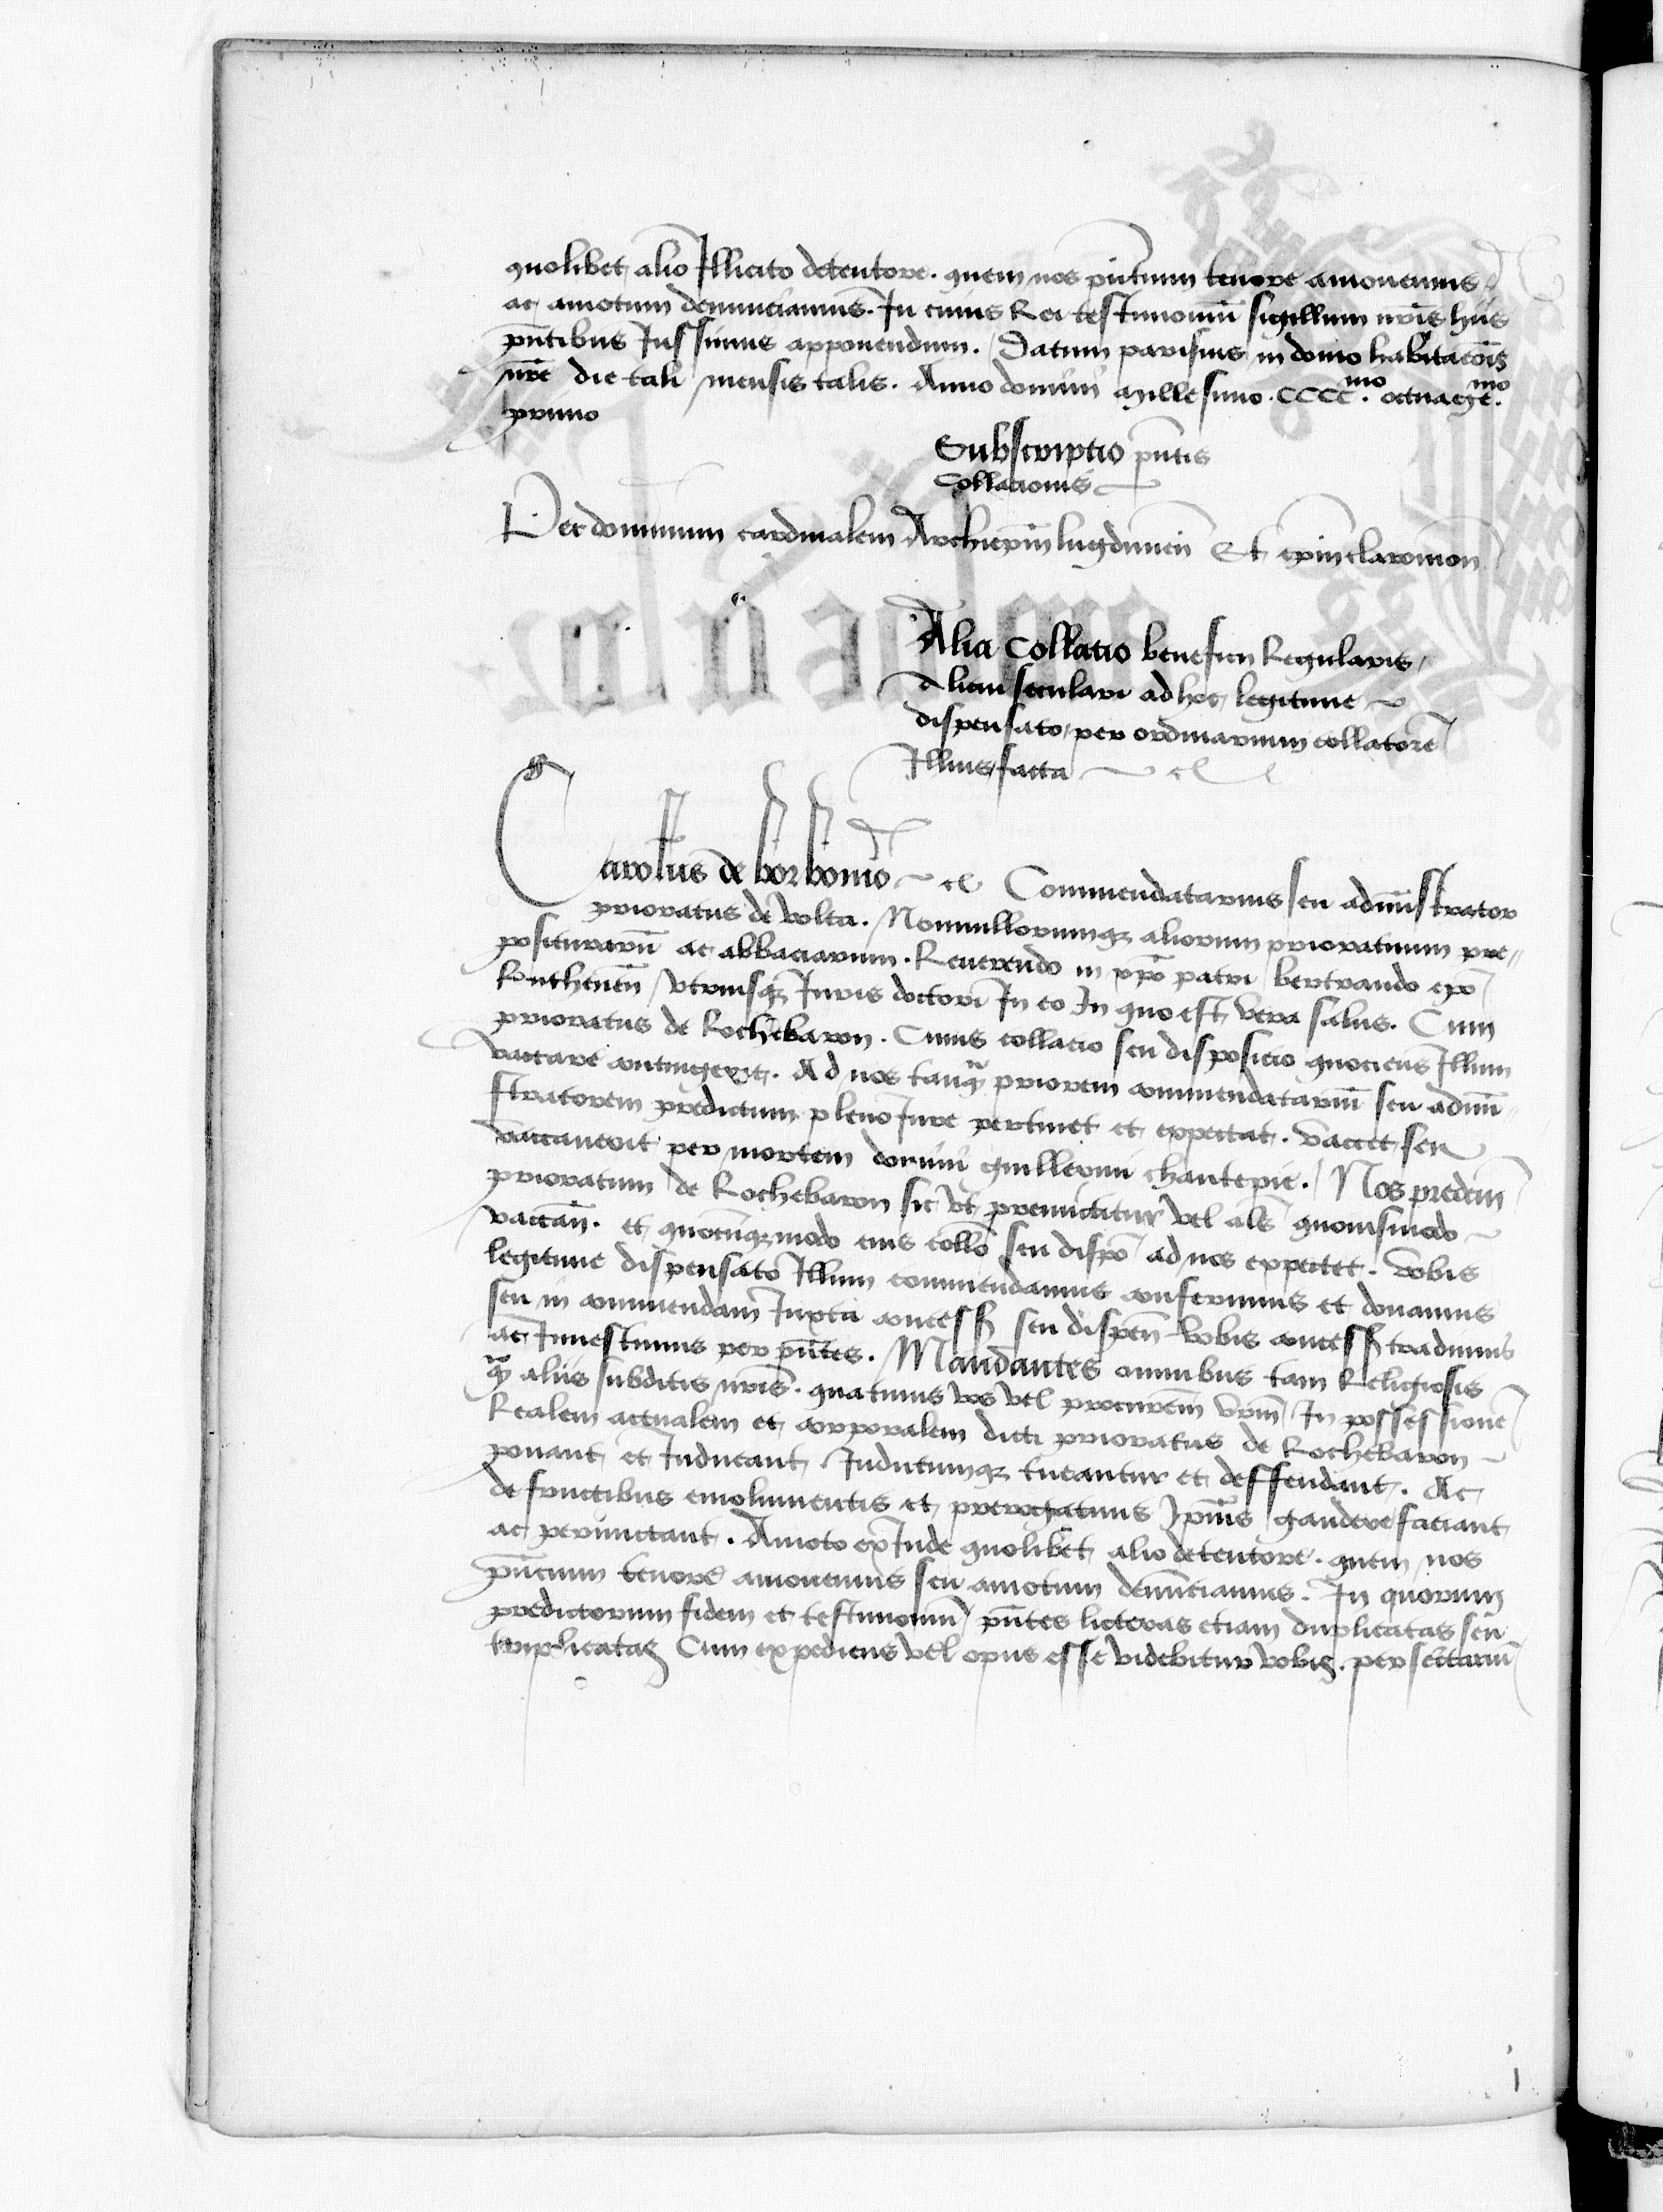 quolibet alio Illicito detentore. quem nos pñtium tenore amouemus
ac amotum denunciamus. In cuius Rei testimoniũ sigillum nr̃is hiis
pñtibus Iussimus apponendum. Datum parisius in domo habitacõis
nr̃e die tali mensis talis. Anno domini Millesimo. CCCC.mo octuagẽ.mo
primo
Subscriptio pñtis
Collacionis
Per dominum cardinalem Archiep̃m lugdunen̄ Et ep̃m claromon̄
Alia Collatio beneficii Regularis
Alicui seculari ad hoc legitime
dispensato, per ordinarium collatorẽ
Illius facta
Carolus de borbonio Commendatarius seu administrator
prioratus de volta. Nonnullorumqz aliorum prioratuum pre„
positurarũ ac abbaciarum. Reuerendo in xp̃o patri bertrando ep̃o
Ruthenen̄ vtriusqz Iuris doctori In eo In quo est vera salus. Cum
prioratus de Rochebaron. Cuius collacio seu disposicio quociens Illum
vaccare contingerit. Ad nos tanqz priorem commendatariũ seu admĩ„
stratorem predictum pleno Iure pertinet et expectat. vaccet seu
vaccauerit per mortem domini guillermi chantepie. Nos predcm̃
prioratum de Rochebaron sic vt premictitur vel als̃ quouismodo
vaccan̄. et quocũqzmodo eius collõ seu dispõ ad nos expectet. vobis
legitime dispensato Illum commendamus conferimus et donamus
seu in commendam Iuxta concess̃ seu dispen̄ vobis concess̃ tradimus
ac Inuestimus per pñtes. Mandantes omnibus tam Religiosis
qz aliis subditis nr̃is. quatinus vos vel procurem̃ vr̃m In possessionẽ
Realem actualem et corporalem dicti prioratus de Rochebaron
ponant et Inducant. Inductumqz tueantur et deffendant. Ac
de fructibus emolumentis et prerogatiuis Ip̃ius gaudere faciant
ac permictant. Amoto exInde quolibet alio detentore. quem nos
pñcium tenore amouemus seu amotum denũciamus. In quorum
predictorum fidem et testimoniũ pñtes licteras etiam duplicatas seu
triplicatas Cum expediens vel opus esse videbitur vobis. per sectariũ